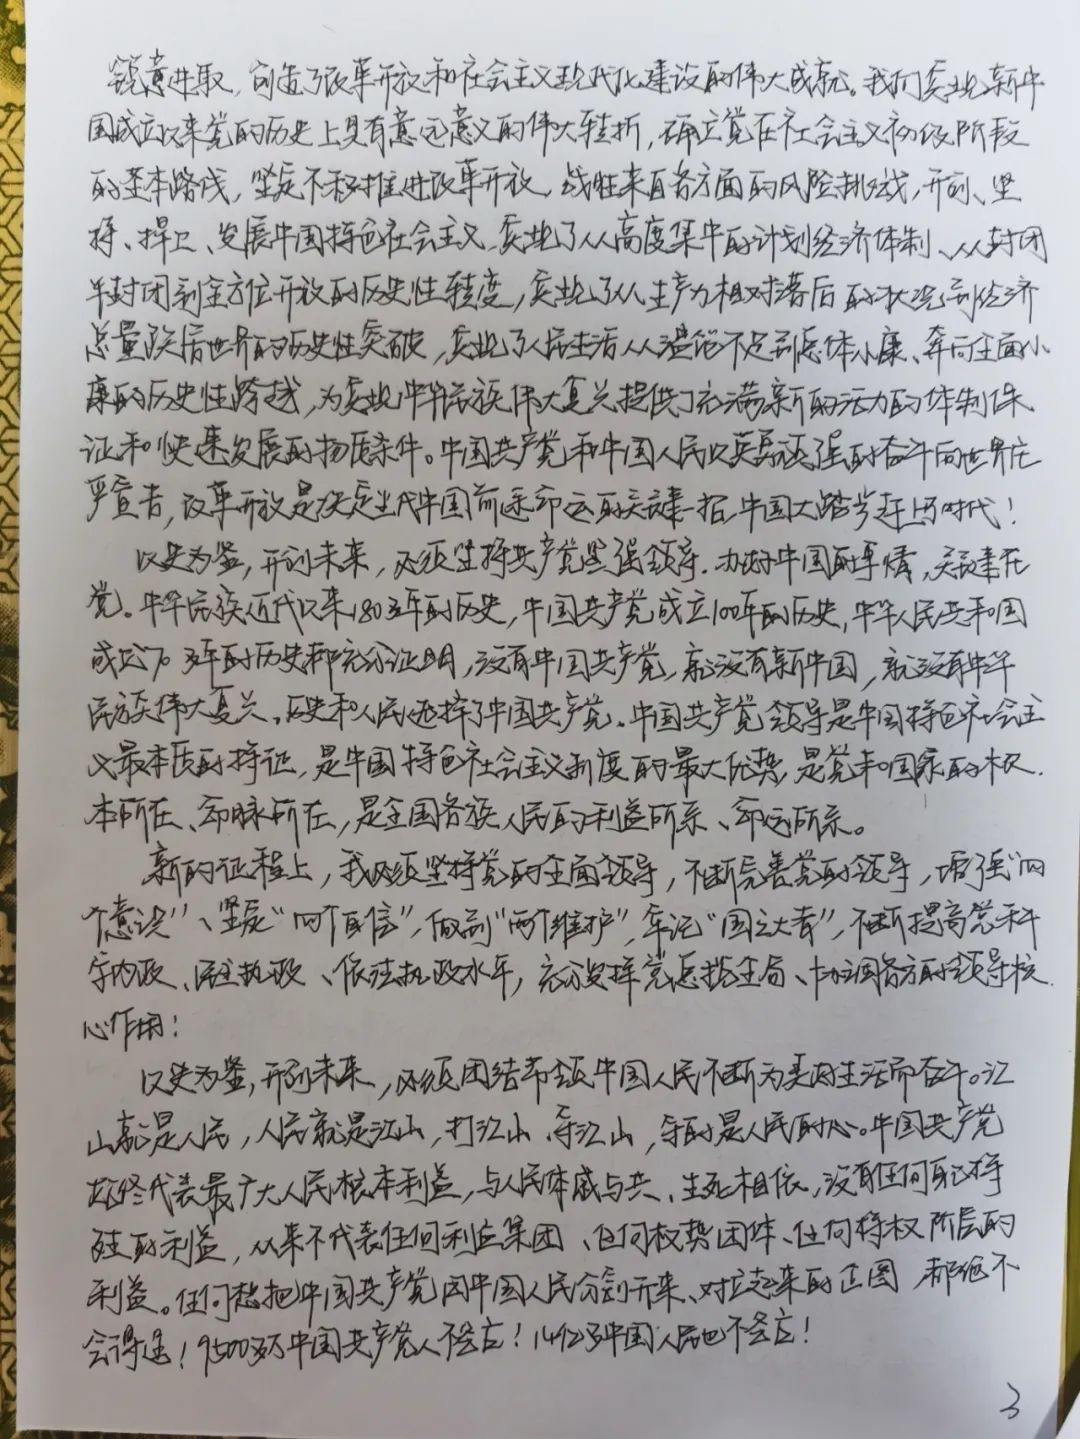 锐意进取，创造了改革开放和社会主义现代化建设的伟大成就。我们实现新中
国成立以来党的历史上具有意远意义的伟大转折，确立党在社会主义初级阶段
的基本路线，坚定不移推进改革开放，战胜来自各方面的风险挑战，开创、坚
持、捍卫、发展中国特色社会主义，实现了从高度集中的计划经济体制、从封闭
半封闭到全方位开放的历史性转变，实现了从生产力相对落后的状况到经济
总量跃居世界的历史性突破，实现了人民生活从温饱不足到总体小康、奔向全面小
康的历史性跨越，为实现中华民族伟大复兴提供了充满新的活力的体制保
证和快速发展的物质条件。中国共产党和中国人民以英勇顽强的奋斗向世界庄
严宣告，改革开放是决定当代中国前途命运的关键一招，中国大踏步赶上了时代！
以史为鉴，开创未来，必须坚持共产党坚强领导。办好中国的事情，关键在
党。中华民族近代以来180多年的历史，中国共产党成立100年的历史，中华人民共和国
成立70多年的历史都充分证明，没有中国共产党，就没有新中国，就没有中华
民族伟大复兴。历史和人民选择了中国共产党。中国共产党领导是中国特色社会主
义最本质的特征，是中国特色社会主义制度的最大优势，是党和国家的根
本所在、命脉所在，是全国各族人民的利益所系、命运所系。
新的征程上，我必须坚持党的全面领导，不断完善党的领导，增强“四
个意识”、坚定“四个自信”，做到“两个维护”，牢记“国之大者”，不断提高党科
学执政、民主执政、依法执政水平，充分发挥党总揽全局、协调各方的领导核
心作用！
以史为鉴，开创未来，必须团结带领中国人民不断为美好生活而奋斗。江
山就是人民，人民就是江山，打江山、守江山，守的是人民的心。中国共产党
始终代表最广大人民根本利益，与人民休戚与共、生死相依，没有任何自己特
殊的利益，从来不代表任何利益集团、任何权势团体、任何特权阶层的
利益。任何想把中国共产党同中国人民分割开来、对立起来的企图，都绝不
会得逞！9500多万中国共产党人不答应！14亿多中国人民也不答应！
3